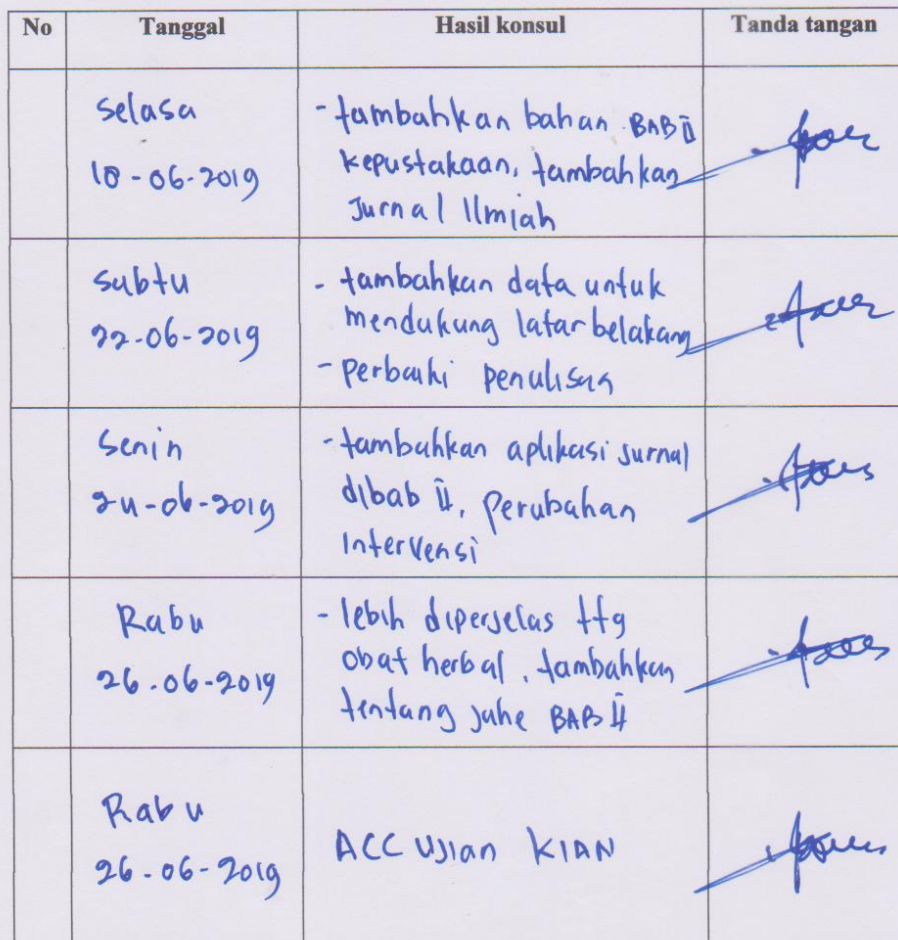 No Tanggal Hasil konsul Tanda tangan
Selasa
18-06-2019
- tambahkan bahan BAB II
kepustakaan, tambahkan
Jurnal Ilmiah
Sabtu
22-06-2019
- tambahkan data untuk
mendukung latar belakang
- perbaiki penulisan
Senin
24-06-2019
- tambahkan aplikasi jurnal
dibab II, perubahan
Intervensi
Rabu
26-06-2019
- lebih diperjelas ttg
obat herbal, tambahkan
tentang jahe BAB II
Rabu
26-06-2019
ACC Ujian KIAN